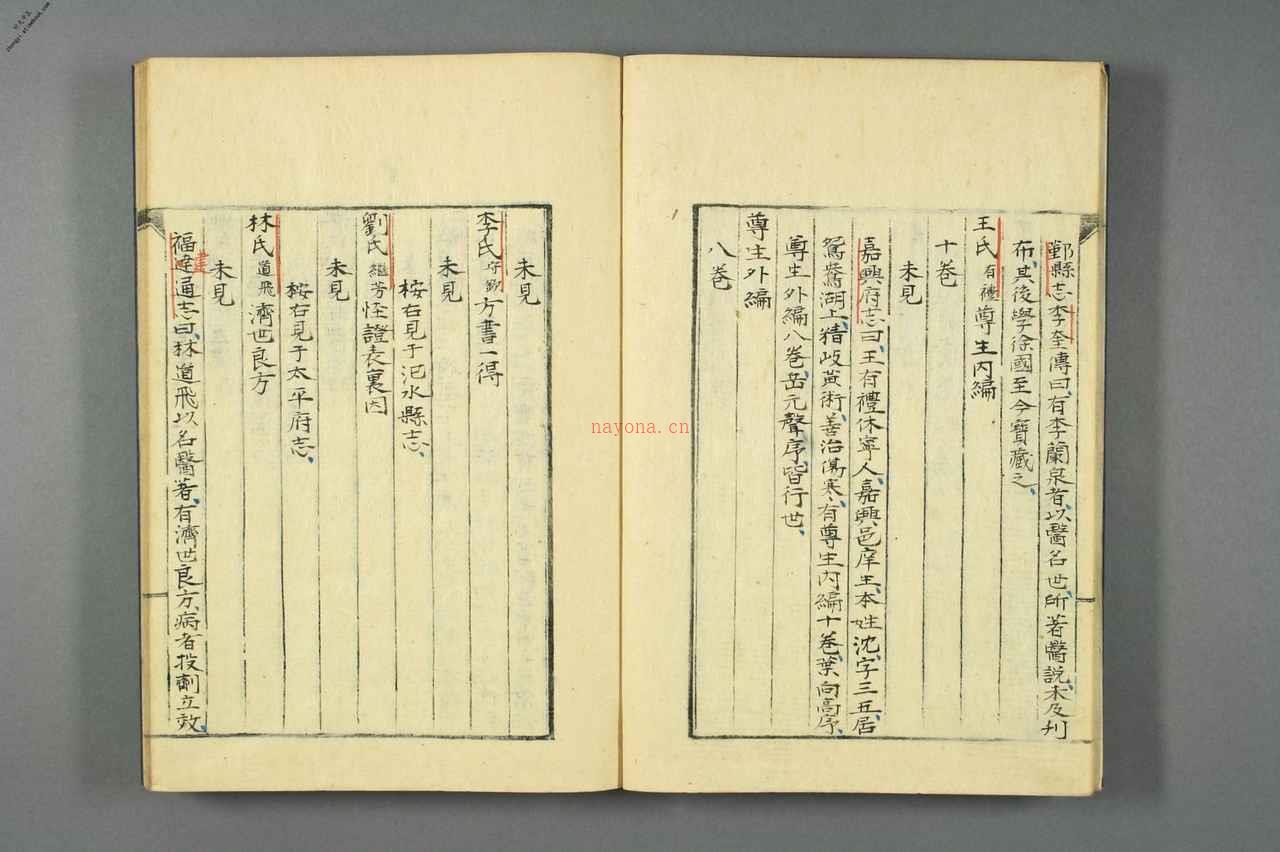 鄞縣志李奎傳曰、有李蘭泉者、以醫名世、所著醫說、未及刊
布、其後學徐國至今寶藏之、
王氏有禮尊生內編
十巻
未見
嘉興府志曰、王有禮休寧人、嘉興邑庠生、本姓沈、字三五、居
鴛鴦湖上、精歧黃術、善治傷寒、有尊生內編十巻、葉向高序、
尊生外編八巻、岳元聲序、皆行世、
尊生外編
八巻
未見
李氏守欽方書一得
未見
桉右見于汜水縣志、
劉氏繼芳怪證表裏因
未見
桉右見于太平府志、
林氏道飛濟世良方
未見
福建通志曰、林道飛以名醫著、有濟世良方、病者投劑立效、
建
nayona.cn